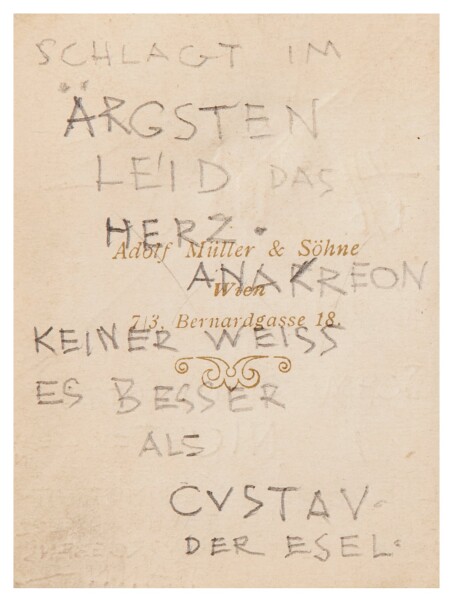 SCHLAGT IM
ÄRGSTEN
LEID DAS
HERZ.
Adolf Müller & Söhne
ANAKREON
Wien
7/3, Bernardgasse 18.
KEINER WEISS
ES BESSER
ALS
GVSTAV.
DER ESEL.